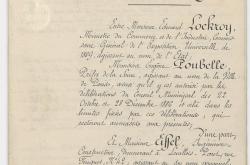 Entre Monsieur Edouard Lockroy,
Ministre du Commerce et de l'Industrie, Commis-
saire Général de l'Exposition Universelle de
1889, agissant au nom de l'Etat,
Monsieur Eugène Poubelle,
Préfet de la Seine, agissant au nom de la Ville
de Paris, ainsi qu'il y est autorisé par les
délibérations du Conseil Municipal des 22
Octobre et 28 Décembre 1886 et cela dans les
limites fixées par ces délibérations, qui
resteront annexées aux présentes,
D'une part,
Et Monsieur Eiffel, Ingénieur-
Constructeur, demeurant à Levallois-Perret, rue
Fouquet Nº 42, agissant en son nom personnel